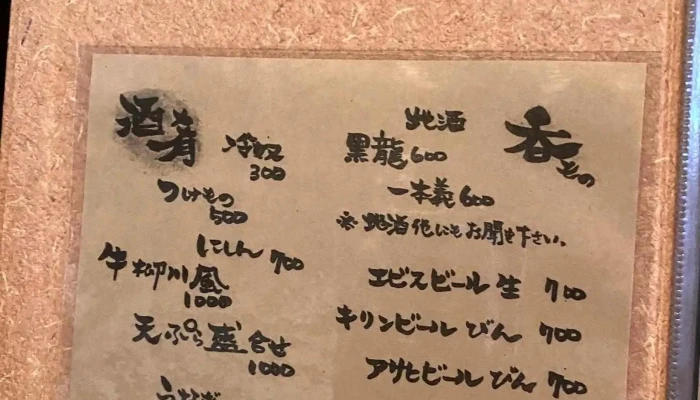 呑もの
地酒
黒龍 600
一本義 600
※地酒他にもお聞き下さい。
エビスビール 生 700
キリンビール びん 700
アサヒビール びん 700
酒肴
冷奴
300
つけもの
500
にしん 700
牛柳川風
1000
天ぷら盛合せ
1000
うなぎ